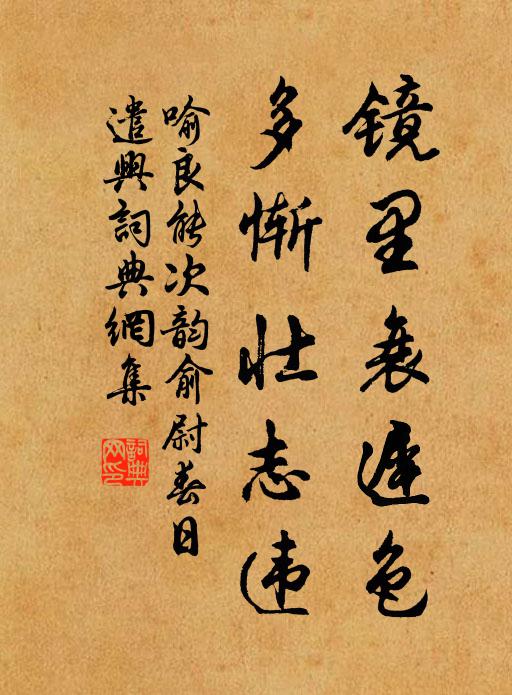 镜里衰迟色
多惭壮志违
喻良能次韵俞尉春日
遣興詞典網集
詞典
网印